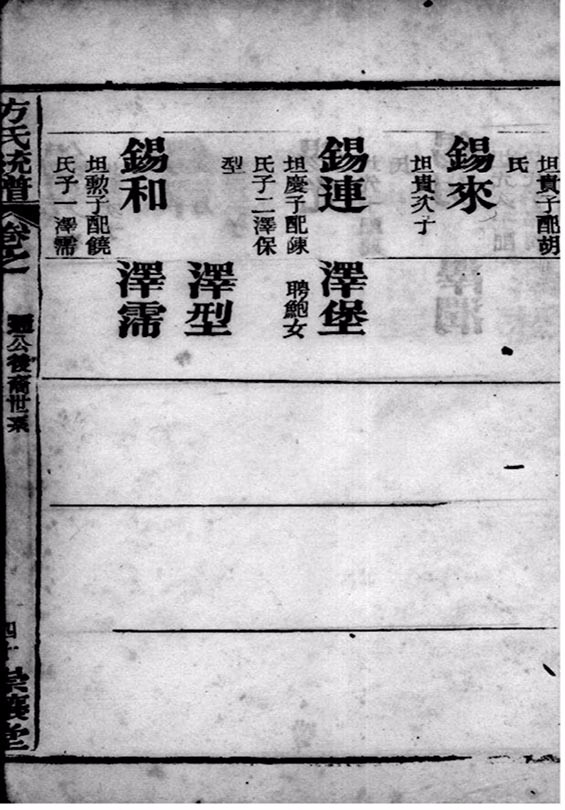 坦貴子配胡
氏
錫來
坦貴次子
錫連
坦慶子配陳
氏子二澤保
型
澤堡
聘鮑女
澤型
錫和
坦勲子配饒
氏子一澤霈
澤霈
方氏統譜
卷之
公後裔世系
四十
崇義堂